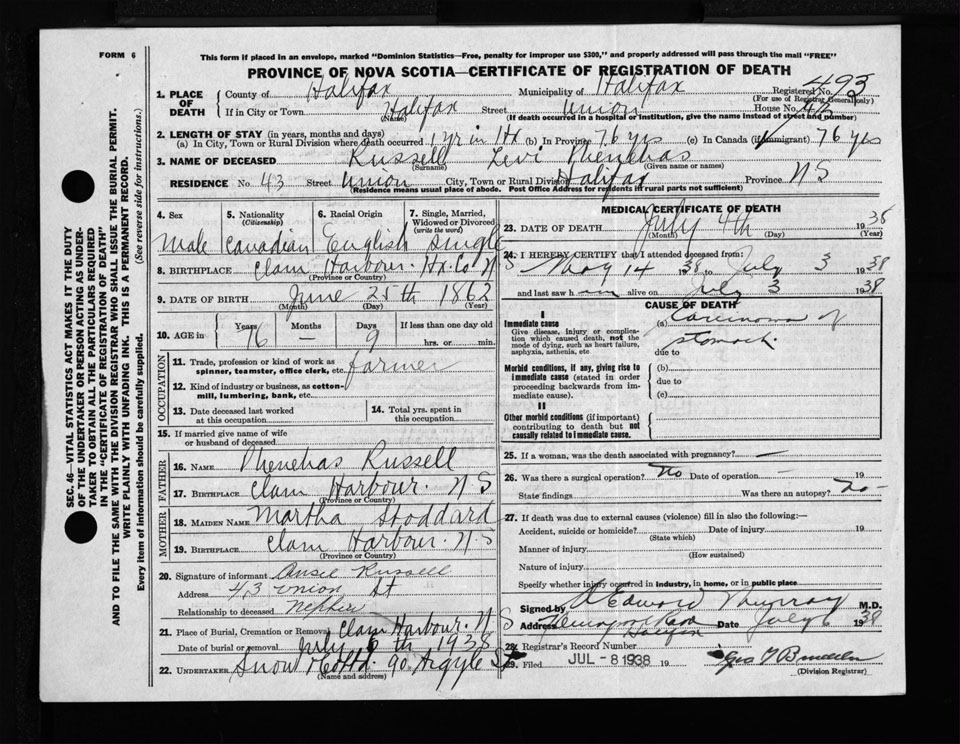 FORM 6
This form if placed in an envelope, marked "Dominion Statistics—Free, penalty for improper use $300," and properly addressed will pass through the mail "FREE"
PROVINCE OF NOVA SCOTIA—CERTIFICATE OF REGISTRATION OF DEATH
SEC. 46—VITAL STATISTICS ACT MAKES IT THE DUTY
OF THE UNDERTAKER OR PERSON ACTING AS UNDER-
TAKER TO OBTAIN ALL THE PARTICULARS REQUIRED
IN THE "CERTIFICATE OF REGISTRATION OF DEATH"
AND TO FILE THE SAME WITH THE DIVISION REGISTRAR WHO SHALL ISSUE THE BURIAL PERMIT.
WRITE PLAINLY WITH UNFADING INK. THIS IS A PERMANENT RECORD.
Every item of information should be carefully supplied. (See reverse side for instructions.)
1. PLACE OF DEATH
County of Halifax Municipality of Halifax Registered No. 493
(For use of Registrar General only)
If in City or Town Halifax Street Union House No. 43
(Name) (If death occurred in a hospital or institution, give the name instead of street and number)
2. LENGTH OF STAY (in years, months and days)
(a) In City, Town or Rural Division where death occurred 1 yr in Hx (b) In Province 76 yrs (c) In Canada (if immigrant) 76 yrs
3. NAME OF DECEASED Russell Levi Phenehas
(Surname) (Given name or names)
RESIDENCE No. 43 Street Union City, Town or Rural Division Halifax Province NS
(Residence means usual place of abode. Post Office Address for residents in rural parts not sufficient)
4. Sex 5. Nationality (Citizenship) 6. Racial Origin 7. Single, Married, Widowed or Divorced (write the word)
Male Canadian English Single
8. BIRTHPLACE Clam Harbour. Hx. Co N S
(Province or Country)
9. DATE OF BIRTH June 25th 1862
(Month) (Day) (Year)
10. AGE in Years Months Days If less than one day old
76 — 9 hrs. or min.
OCCUPATION
11. Trade, profession or kind of work as spinner, teamster, office clerk, etc. farmer
12. Kind of industry or business, as cotton-mill, lumbering, bank, etc.
13. Date deceased last worked at this occupation
14. Total yrs. spent in this occupation
15. If married give name of wife or husband of deceased
FATHER
16. NAME Phenehas Russell
17. BIRTHPLACE Clam Harbour. N S
(Province or Country)
MOTHER
18. MAIDEN NAME Martha Stoddard
19. BIRTHPLACE Clam Harbour. N. S
(Province or Country)
20. Signature of informant Ansel Russell
Address 43 Union St
Relationship to deceased Nephew
21. Place of Burial, Cremation or Removal Clam Harbour. N S
Date of burial or removal July 6th 1938
22. UNDERTAKER Snow & Co Ltd. 90 Argyle St
(Name and address)
MEDICAL CERTIFICATE OF DEATH
23. DATE OF DEATH July 4th 1938
(Month) (Day) (Year)
24. I HEREBY CERTIFY that I attended deceased from
May 14 1938 to July 3 1938
and last saw h im alive on July 3 1938
CAUSE OF DEATH
I
Immediate cause (a) Carcinoma of
Give disease, injury or complication which caused death, not the mode of dying, such as heart failure, asphyxia, asthenia, etc
stomach.
due to
Morbid conditions, if any, giving rise to immediate cause (stated in order proceeding backwards from immediate cause).
(b)
due to
(c)
II
Other morbid conditions (if important) contributing to death but not causally related to immediate cause.
25. If a woman, was the death associated with pregnancy? —
26. Was there a surgical operation? No Date of operation 19
State findings Was there an autopsy? No -
27. If death was due to external causes (violence) fill in also the following:—
Accident, suicide or homicide? Date of injury 19
(State which)
Manner of injury
(How sustained)
Nature of injury
Specify whether injury occurred in industry, in home, or in public place
Signed by Edward Murray M.D.
Address Halifax Date July 6 1938
28. Registrar's Record Number
29. Filed JUL - 8 1938 19
(Division Registrar)